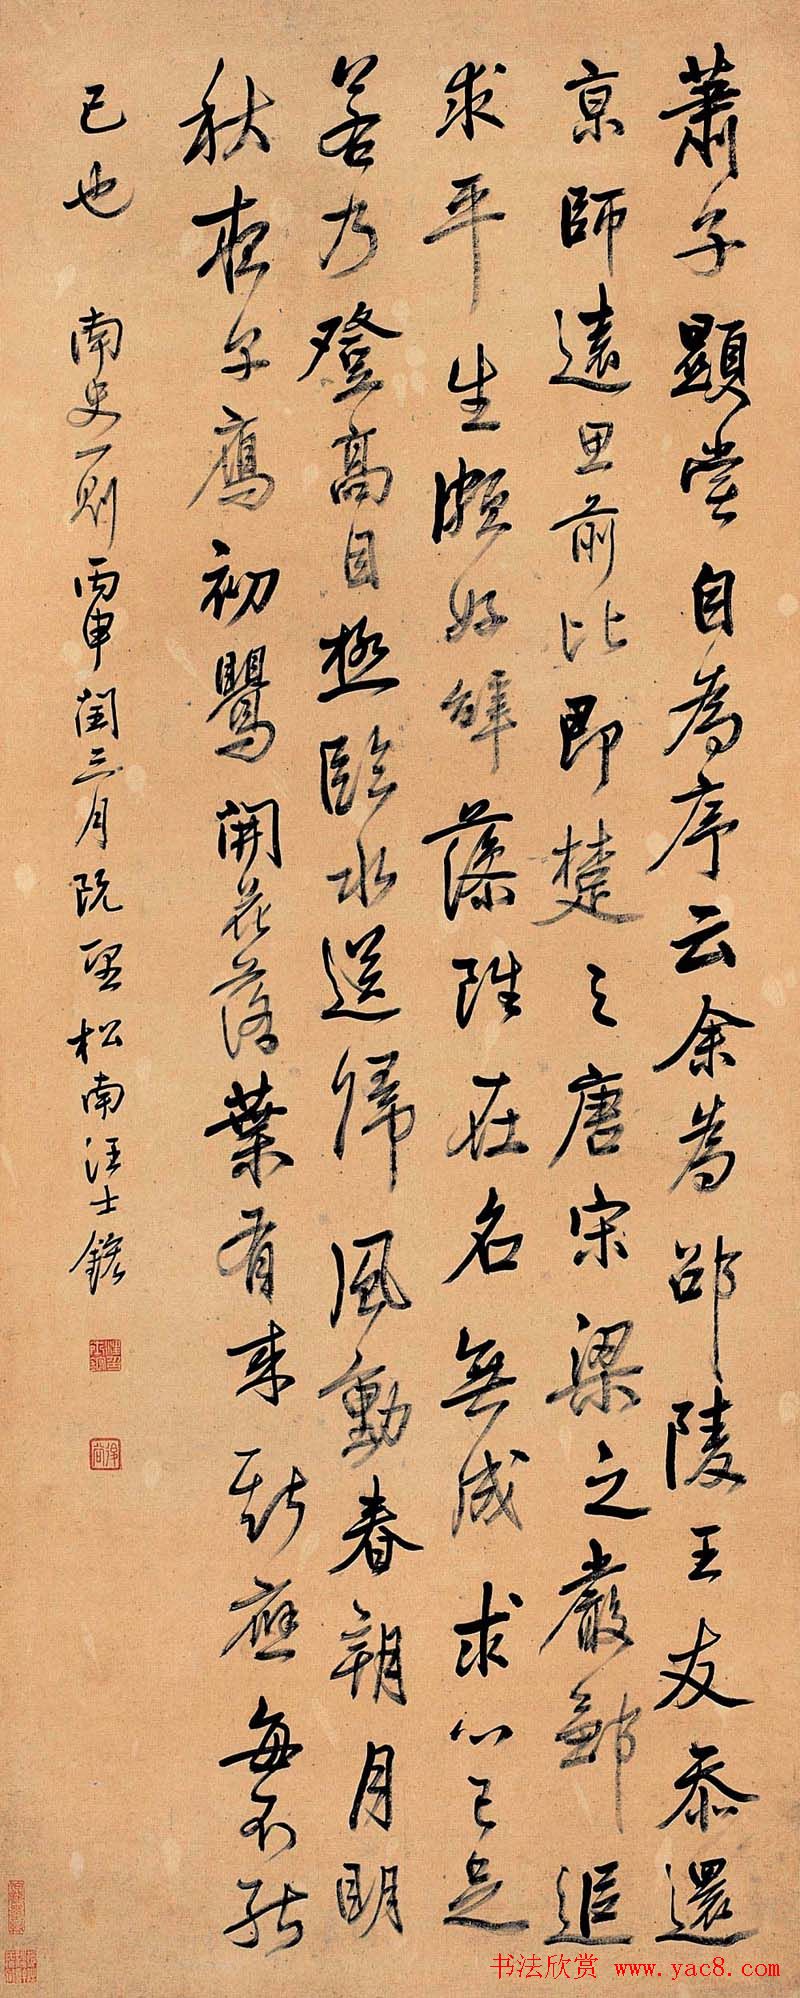 蕭子顯嘗自為序云余為邵陵王友忝還
京師遠思前比即楚之唐宋梁之嚴鄒追
求平生頗好辭藻雖在名無成求心已足
若乃登高目極臨水送歸風動春朝月明
秋夜早鴈初鸎開花落葉有來斯應每不能
已也 南史一則丙申閏三月既望松南汪士鋐
书法欣赏 www.yac8.com